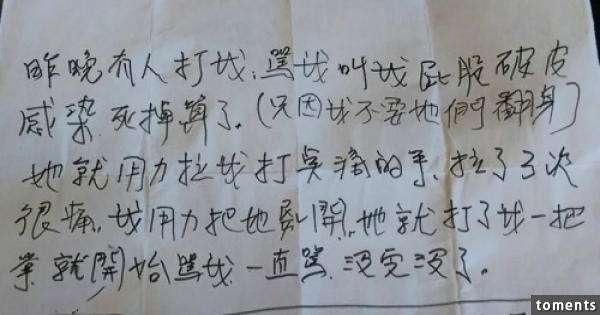 昨晚有人打我,罵我叫我屁股破皮
感染.死掉算了.(只因我不要她們翻身)
她就用力拉我打奌滴的手.拉了3次
很痛.我用力把她開.她就打了我一把
掌就開始罵我.一直罵.沒完沒了.
toments